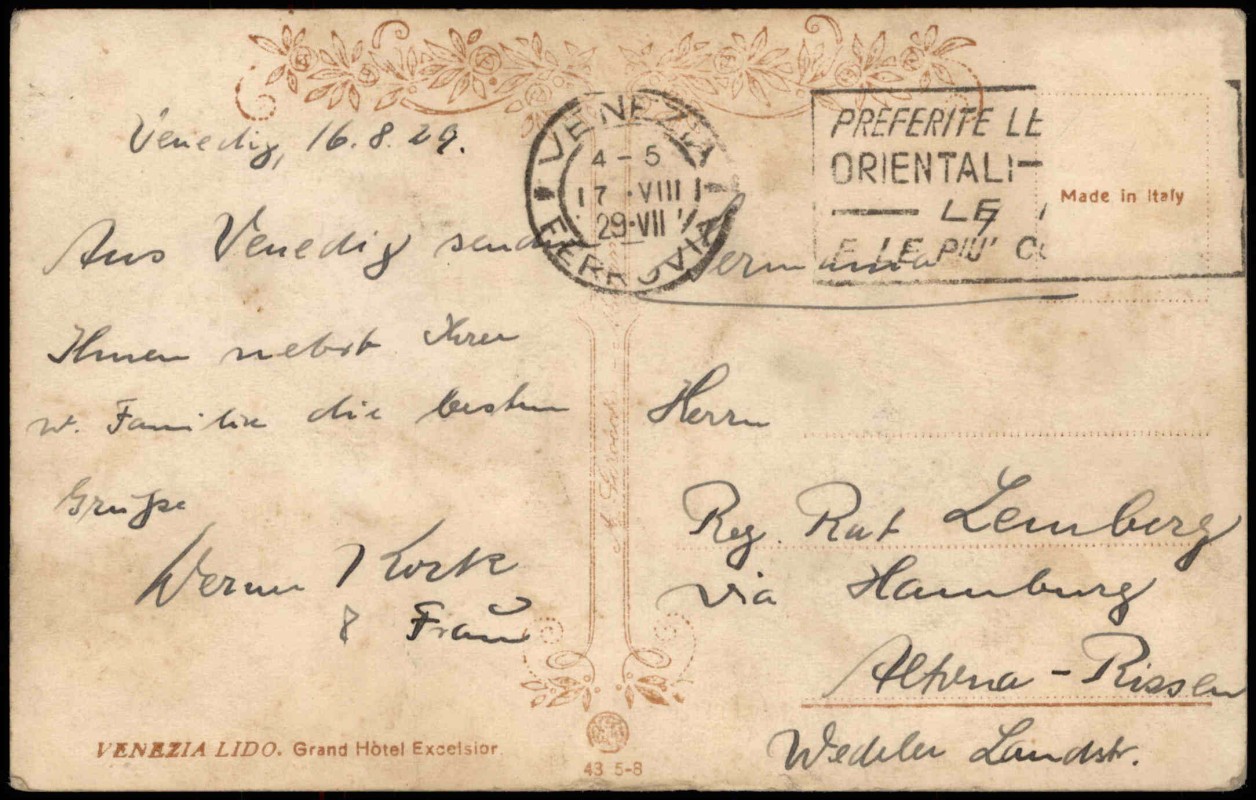 Venedig, 16.8.29.
Aus Venedig sende
Ihnen nebst Ihrer
w. Familie die besten
Grüße
Werner
& Frau
VENEZIA LIDO. Grand Hôtel Excelsior.
VENEZIA
4-5
17·VIII
29·VII
FERROVIA
43 5-8
PREFERITE LE
ORIENTALI—
— LE
E LE PIU' CO
Made in Italy
Germania
Herrn
Reg. Rat Lemberg
via Hamburg
Altona-Rissen
Wedeler Landstr.